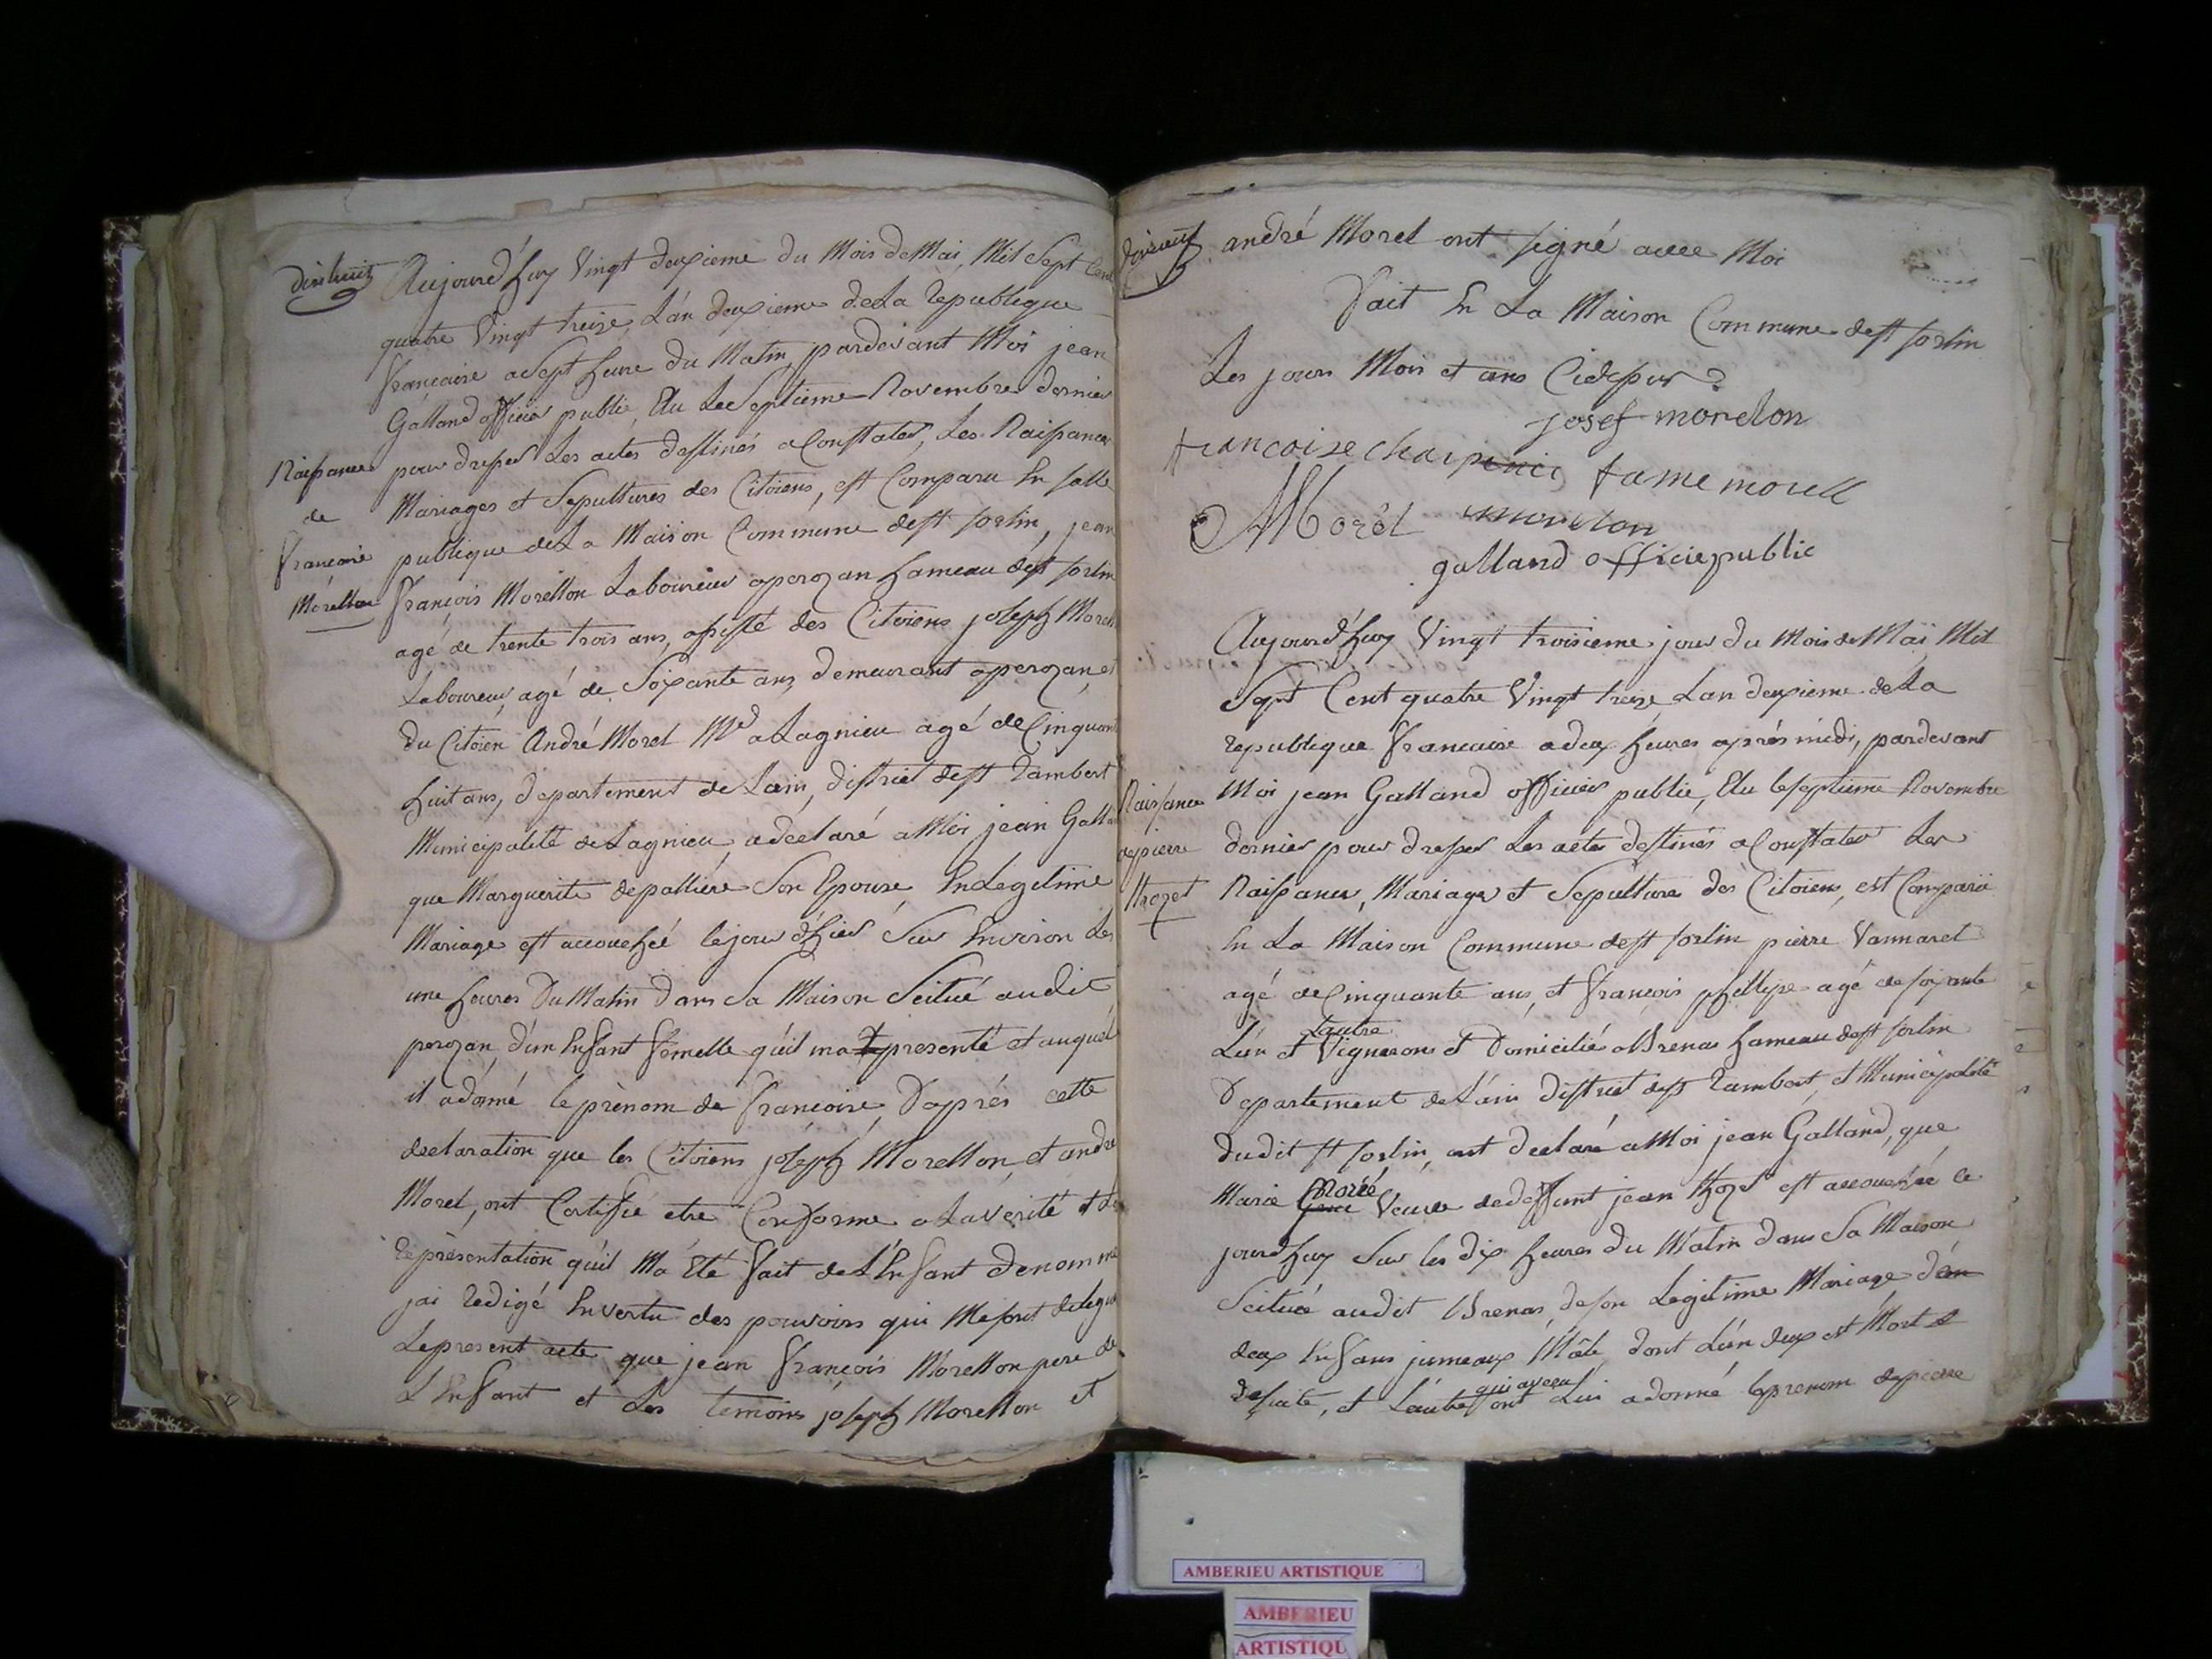 dixhuit
Aujourd'huy Vingt deuxieme du Mois de Mai, Mil Sept Cent
quatre Vingt treize, L'an deuxieme de La republique
francaise a Sept heure du Matin, pardevant Moi jean
Galland officier public, Elu Le Septieme Novembre dernier
pour dresser Les actes destinés a Constater, Les Naissances
Mariages et Sepultures des Citoiens, est Comparu En salle
publique de La Maison Commune de st sorlin, jean
françois Morellon Laboureur a perozan hameau de st sorlin
agé de trente trois ans, assisté des Citoiens joseph Morell
Laboureur, agé de Soixante ans, demeurant a perozan, et
du Citoien André Morel Md a Lagnieu agé de Cinquant
huit ans, departement de Lain, district de st rambert
Municipalité de Lagnieu, a declaré a Moi jean Galla
que Marguerite depalliere Son Epouse, En Legitime
Mariage est accouchéé le jour d'hier Sur Environ Les
une heures Du Matin dans Sa Maison Scitué audit
perozan, d'un Enfant femelle qu'il ma presenté et auquel
il a donné le prènom de francoise, D'aprés cette
declaration que les Citoiens joseph Morellon, et andre
Morel, ont Certifié etre Conforme a La verité et de
Représentation qu'il Ma Eté fait de L'Enfant denommé
jai redigé En vertu des pouvoirs qui Me sont delegué
Le present acte que jean françois Morellon pere de
L'Enfant et Les temoins joseph Morellon et
Naissance
de
francoise
Morellon
dixneuf
andré Morel ont signé avec Moi
fait En La Maison Commune de st sorlin
Les jours Mois et ans Cidessus
josef morelon
francoise charpenci fame morell
Morel morelon
galland officiepublic
Aujourd'huy Vingt troisieme jour du Mois de Maï Mil
Sept Cent quatre Vingt treize L'an deuxieme de La
republique francaise a deux heures aprés midi, pardevant
Moi jean Galland officier public, Elu le septieme Novembre
dernier pour dresser Les actes destinés a Constater Les
Naissances, Mariages et Sepulture des Citoiens, est Comparü
En La Maison Commune de st sorlin pierre Vannarel
agé de Cinquante ans, et françois phellipe agé de soixante
L'un et L'autre Vignerons et Domicilié a Brenas hameau de st sorlin
Departement de L'ain district de st rambert, et Municipalité
dudit st sorlin, ont declaré a Moi jean Galland, que
Marie Morié Veuve de deffunt jean est accouchée ce
jourdhuy Sur les dix heures du Matin dans Sa Maison
Scitué audit Brenas, de son Legitime Mariage d'un
deux Enfans jumeaux Mâle, dont L'un deux est Mort
desuite, et L'autre qui a vecu ont Lui a donné le prenom de pierre
Naissance
de pierre